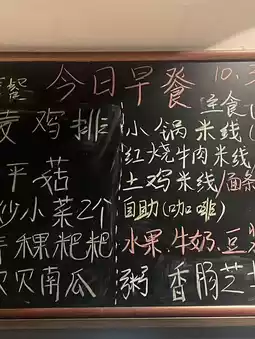 今日早餐 10.
鸡排
平菇
炒小菜2个
青稞粑粑
贝贝南瓜
主食
小锅米线
红烧牛肉米线
土鸡米线/面条
自助(咖啡)
水果.牛奶.豆浆
粥 香豚芝士